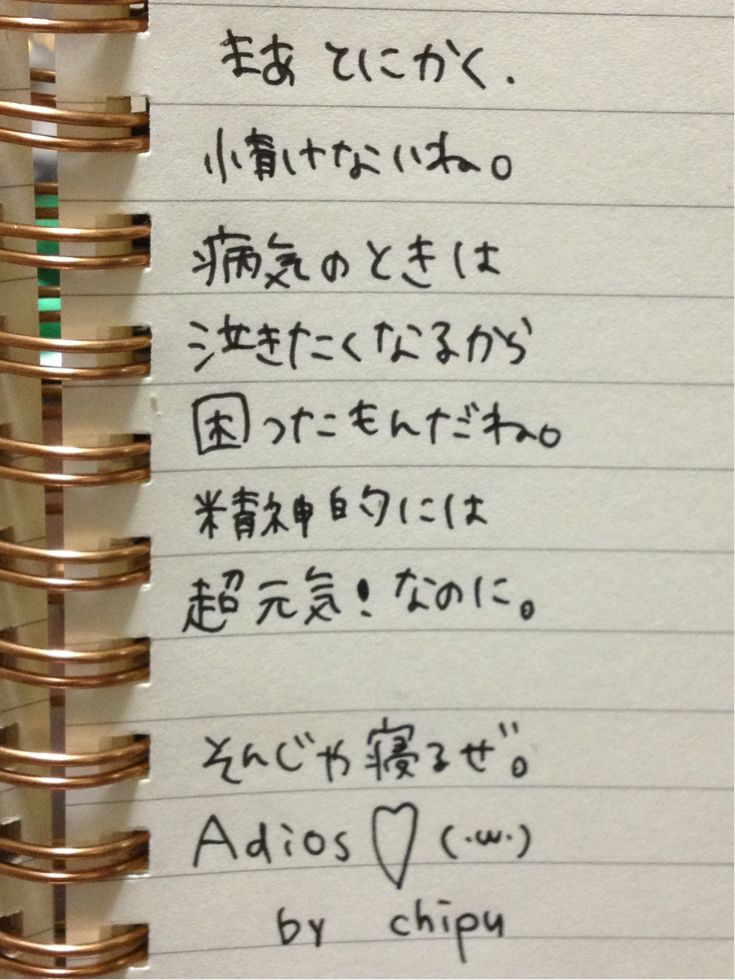 まあ とにかく.
情けないね。
病気のときは
泣きたくなるから
困ったもんだね。
精神的には
超元気!なのに。
そんじゃ寝るぜ。
Adios♡(・ω・)
by chipu